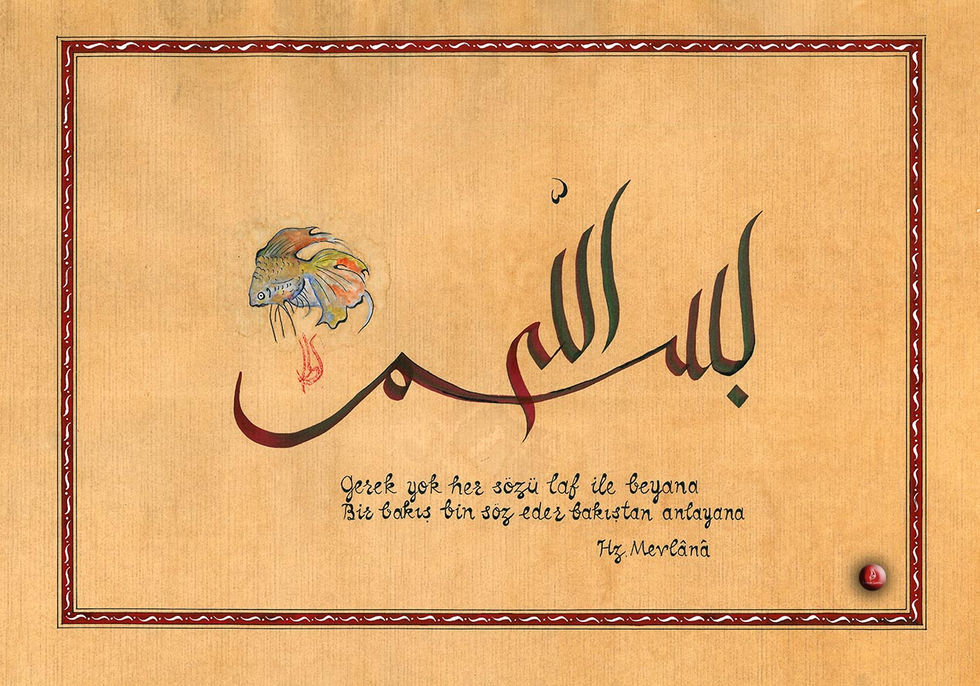 بسم الله
Gerek yok her sözü laf ile beyana
Bir bakış bin söz eder bakıştan anlayana
Hz. Mevlânâ